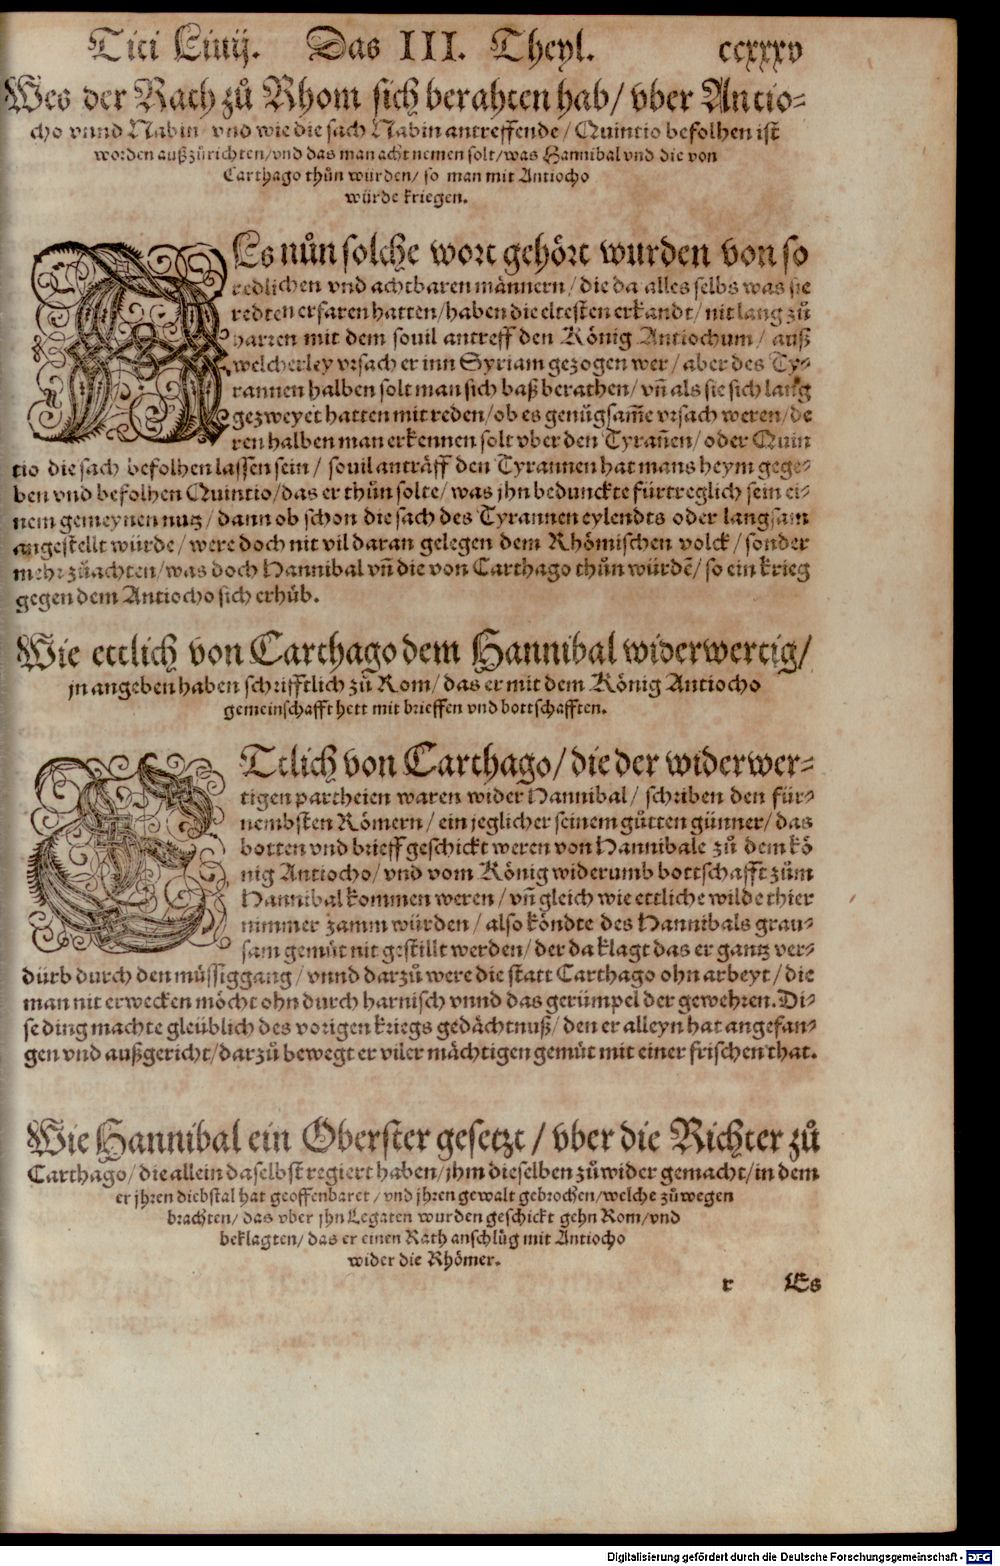 Titi Liuij. Das III. Theyl. ccxxxv
Wes der Rath zů Rhom sich berahten hab/ vber Antio-
cho vnnd Nabin/ vnd wie die sach Nabin antreffende/ Quintio befolhen ist
worden außzůrichten/ vnd das man acht nemen solt/ was Hannibal vnd die von
Carthago thůn würden/ so man mit Antiocho
würde kriegen.
ALs nůn solche wort gehört wurden von so
redlichen vnd achtbaren männern/ die da alles selbs was sie
redten erfaren hatten/ haben die eltesten erkandt/ nit lang zů
harren mit dem souil antreff den König Antiochum/ auß
welcherley vrsach er inn Syriam gezogen wer/ aber des Ty-
rannen halben solt man sich baß berathen/ vñ als sie sich lang
gezweyet hatten mit reden/ ob es genůgsam̃e vrsach weren/ de
ren halben man erkennen solt vber den Tyrañen/ oder Quin
tio die sach befolhen lassen sein/ souil anträff den Tyrannen hat mans heym gege-
ben vnd befolhen Quintio/ das er thůn solte/ was jhn bedunckte fürtreglich sein ei-
nem gemeynen nutz/ dann ob schon die sach des Tyrannen eylendts oder langsam
angestellt würde/ were doch nit vil daran gelegen dem Rhömischen volck/ sonder
mehr zůachten/ was doch Hannibal vñ die von Carthago thůn würdẽ/ so ein krieg
gegen dem Antiocho sich erhůb.
Wie ettlich von Carthago dem Hannibal widerwertig/
jn angeben haben schrifftlich zů Rom/ das er mit dem König Antiocho
gemeinschafft hett mit brieffen vnd bottschafften.
ETtlich von Carthago/ die der widerwer-
tigen partheien waren wider Hannibal/ schriben den für-
nembsten Römern/ ein jeglicher seinem gůtten günner/ das
botten vnd brieff geschickt weren von Hannibale zů dem kö
nig Antiocho/ vnd vom König widerumb bottschafft zům
Hannibal kommen weren/ vñ gleich wie ettliche wilde thier
nimmer zamm würden/ also köndte des Hannibals grau-
sam gemüt nit gestillt werden/ der da klagt das er gantz ver-
dürb durch den müssiggang/ vnnd darzů were die statt Carthago ohn arbeyt/ die
man nit erwecken möcht ohn durch harnisch vnnd das gerümpel der gewehren. Di-
se ding machte gleüblich des vorigen kriegs gedächtnuß/ den er alleyn hat angefan-
gen vnd außgericht/ darzů bewegt er viler mächtigen gemüt mit einer frischen that.
Wie Hannibal ein Oberster gesetzt/ vber die Richter zů
Carthago/ die allein daselbst regiert haben/ jhm dieselben zůwider gemacht/ in dem
er jhren diebstal hat geoffenbaret/ vnd jhren gewalt gebrochen/ welche zůwegen
brachten/ das vber jhn Legaten wurden geschickt gehn Rom/ vnd
beklagten/ das er einen Rath anschlůg mit Antiocho
wider die Rhömer.
r Es
Digitalisierung gefördert durch die Deutsche Forschungsgemeinschaft - DFG